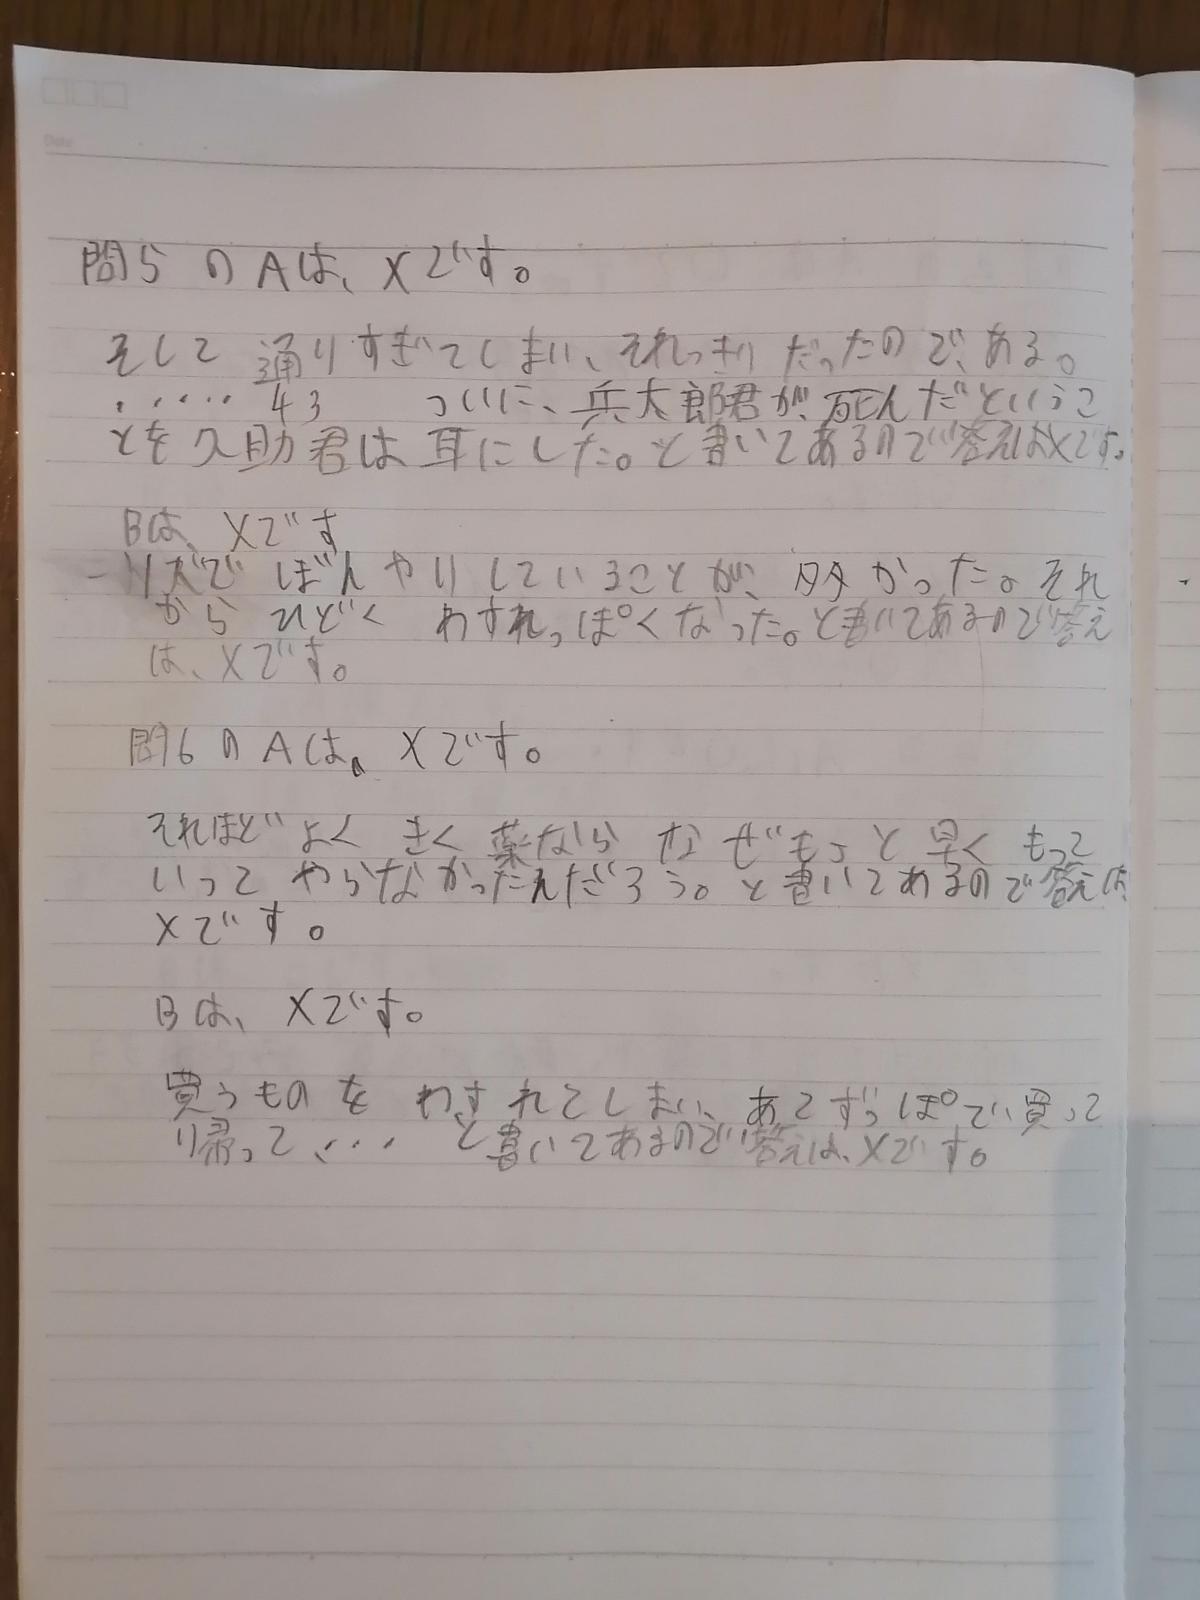 Date
問5 の Aは、Xです。
そして 通りすぎてしまい、それっきりだったのである。
・・・・・ 43 ついに、兵太郎君が、死んだというこ
とを久助君は耳にした。と書いてあるので答えはXです。
Bは、Xです
一人でぼんやりしていることが、多かった。それ
からひどく わすれっぽくなった。と書いてあるので答え
は、Xです。
問6 の Aは、Xです。
それほどよく きく 薬なら なぜもっと早く もって
いって やらなかったんだろう。と書いてあるので答えは、
Xです。
Bは、Xです。
買うものを わすれてしまい、あてずっぽで、買って
帰って、・・・ と書いてあるので答えは、Xです。